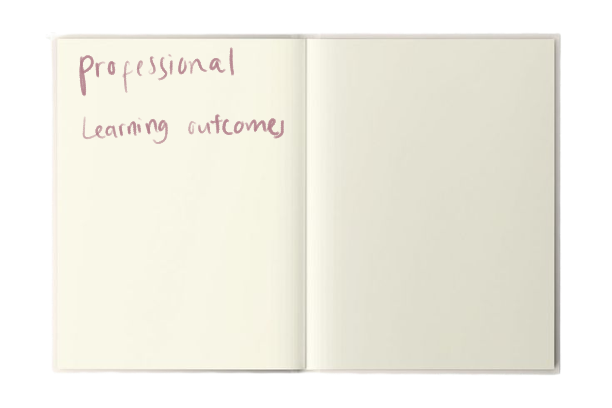 professional
Learning outcomes